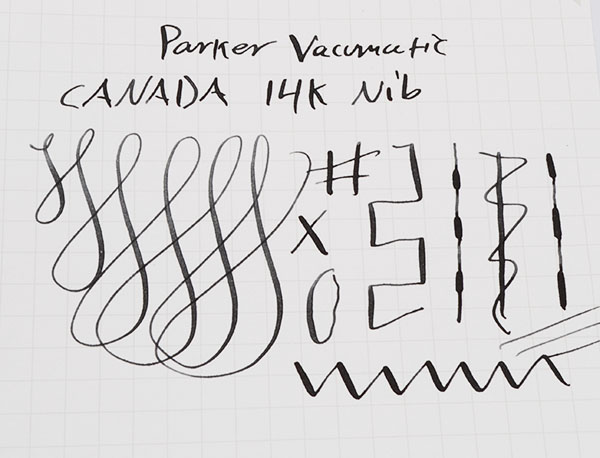 Parker Vacumatic
CANADA 14K Nib
#
x
o